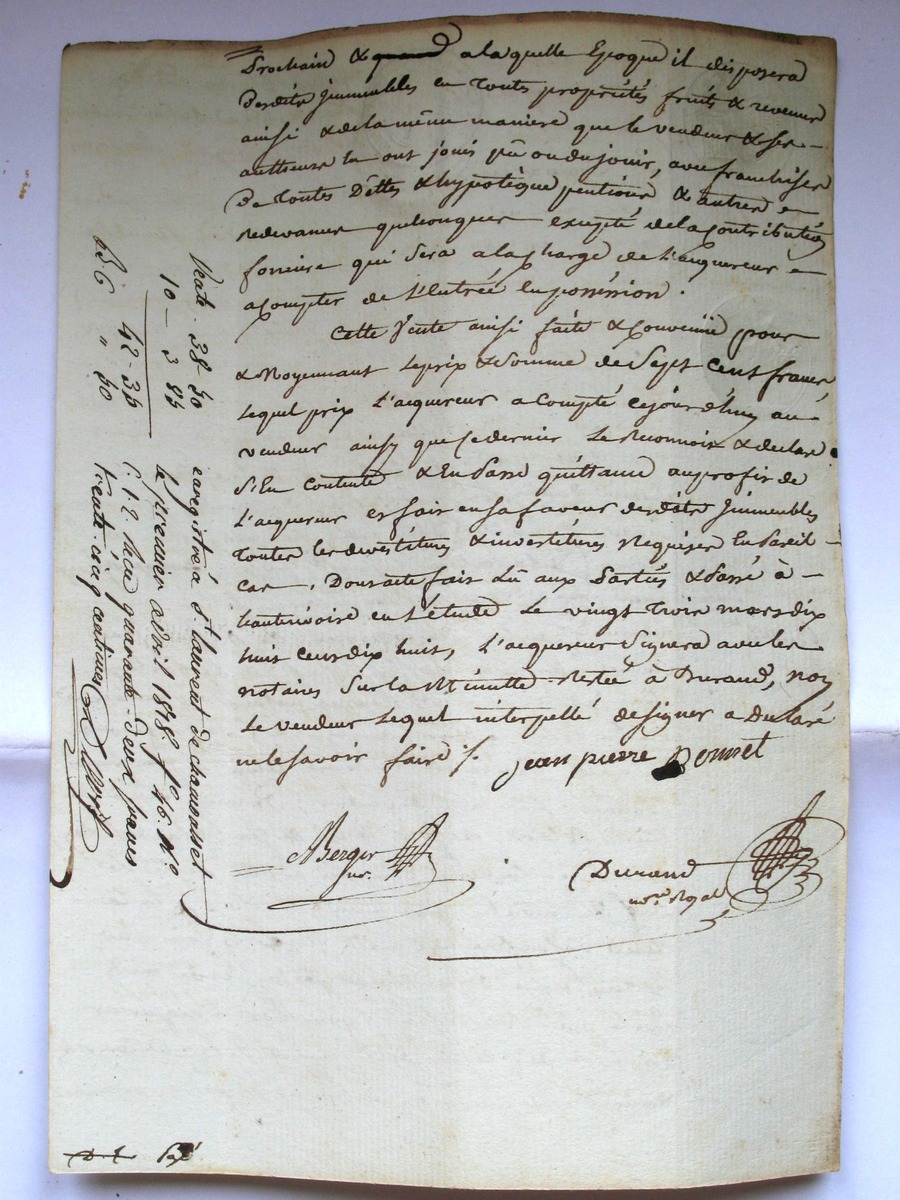 Prochain & a laquelle Epoque il disposera
Desdits jmmeubles en toutes propriétés fruits & revenus
ainsi & de la même maniere que le vendeur & ses
autheurs en ont jouis pû ou du jouir, avec franchises
De toutes Dettes & hypotèque pentions & autres
redevances quelconques excepté de la Contribution
fonciere qui sera a la Charge de l'acquereur
a Compter de l'Entrée En possession.
Cette Vente ainsi faite & Convenüe pour
& Moyennant le prix & Somme de Sept Cent francs
Lequel prix l'acquereur a Compté cejourd'huy au
vendeur ainsy que ce dernier le Reconnoit & declare
s'En Contente & En Passe quittance au profit de
L'acquereur et fait en sa faveur desdits Jmmeubles
toutes les devestitures & investitures Requises En Pareil
Cas. Dont acte fait Lû aux Partiès & Passé à
hauterivoire en l'étude Le vingt trois mars dix
huit Cent dix huit, L'acquereur Signera avec les
notaires Sur la Minutte Restée à Durand, non
Le vendeur Lequel interpellé de signer a Declaré
ne le savoir faire ./.
jean pierre Bonnet
Berger
nre.
Durand
nore. Royal
enregistré a St. laurent de chamousset
le premier avril 1818 fo. 46. No.
quarante-deux francs
trente-cinq centimes
Vente. 38. 50
10 — 3 85
42 - 35